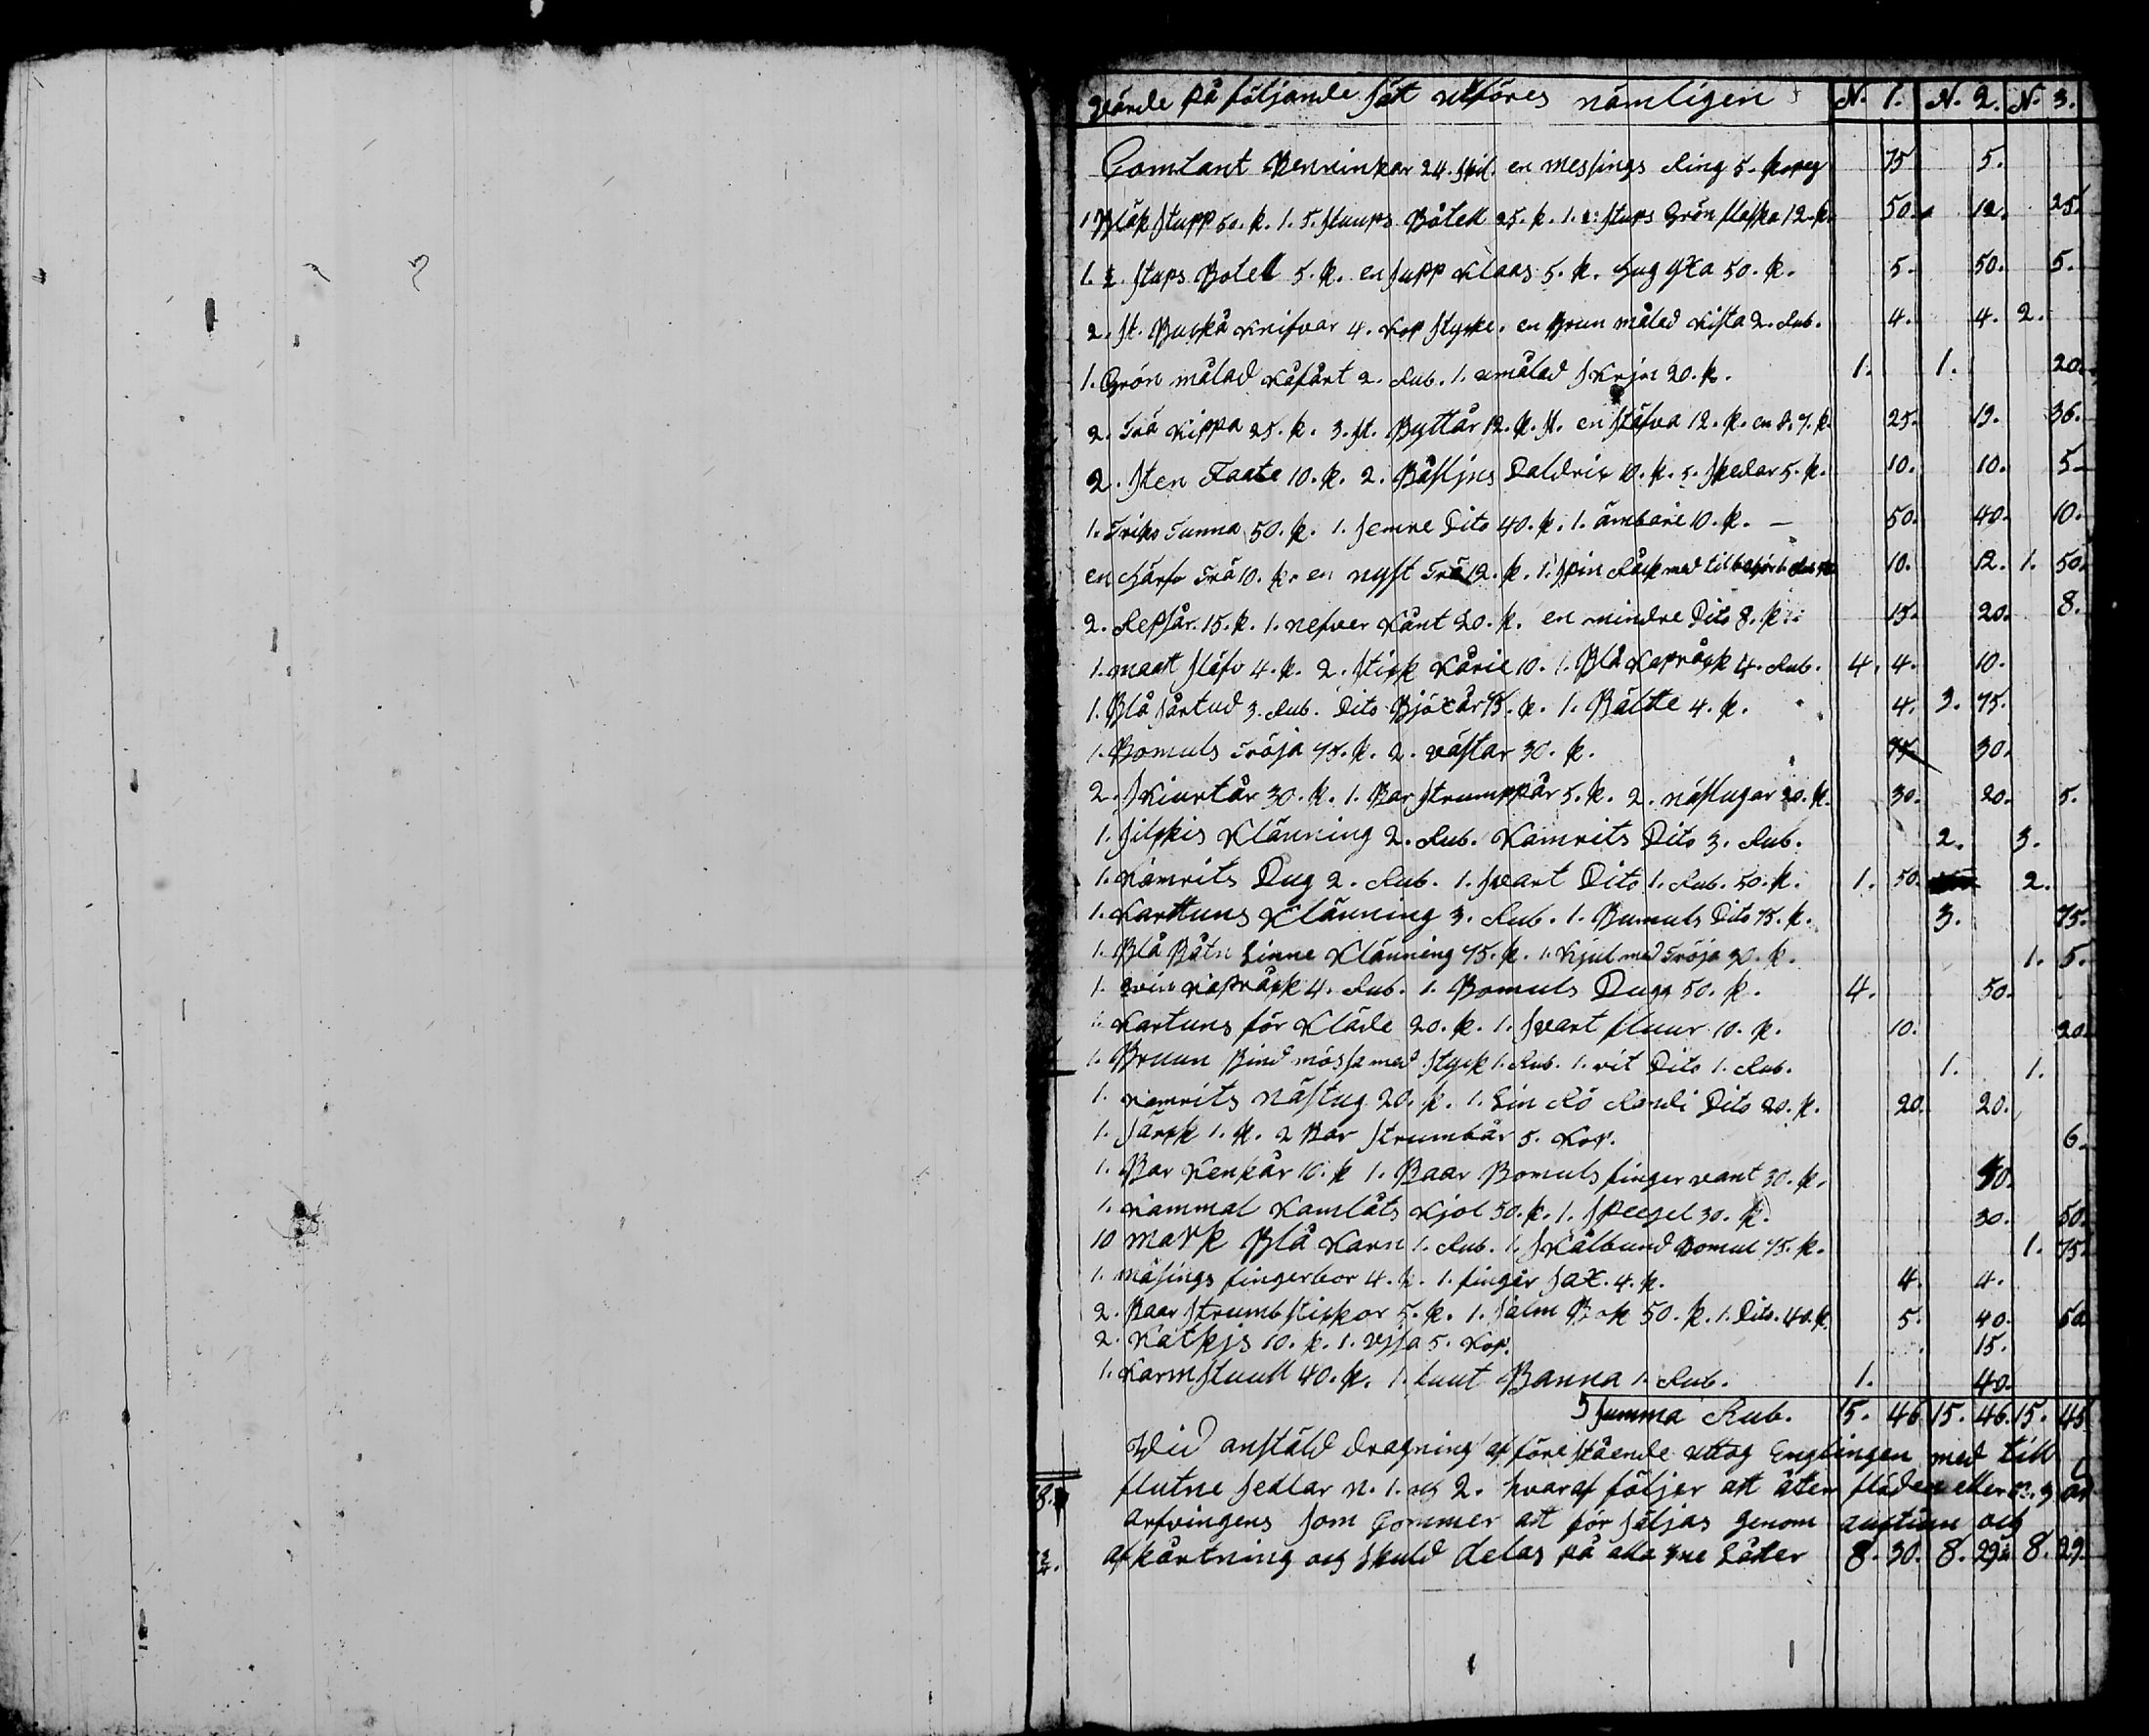 värde på följande sätt utföres nämligen N. 1. N. 2. N. 3.
Comtant Penninkar 24. skil. en messings Ring 5. kopeg 75 5.
1 Bläk stupp 50. k. 1. 5. stuups Båtell 25. k. 1. stups Grön flaska 12. k. 50. 12. 25.
1. stups Botell 5. k. en supp Klaas 5. k. hug yxa 50. k. 5. 50. 5.
2. st. Buckå Knifvar 4. Kop stycke. en Brun målad Kista 2. Rub. 4. 4. 2.
1. Grön målad Kåfårt 2. Rub. 1. omålad skrjn 20. k. 1. 1. 20.
2. Trä Kippa 25. k. 3. st. Byttår 12. k. st. en stäfva 12. k. en d. 7. k. 25. 19. 36.
2. sten Faate 10. k. 2. Båsljns Taldrix 10. k. 5. skedar 5. k. 10. 10. 5.
1. Triks Tunna 50. k. 1. semre Dito 40. k. 1. ämbare 10. k. — 50. 40. 10.
en härfv Trä 10. k. en nyst Trä 12. k. 1. spin Råck med tilbehör 1. Rub 50 10. 12. 1. 50.
2. Repsår 15. k. 1. nefver Kånt 20. k. en mindre Dito 8. k. 15. 20. 8.
1. maatt släfv 4. k. 2. stick Kårie 10. 1. Blå Kapråck 4. Rub. 4. 4. 10.
1. Blå sårtud 3. Rub. Dito Bjöxår 75. k. 1. Bälte 4. k. 4. 3. 75.
1. Bomuls Tröja 75. k. 2. västar 30. k. 75 30.
2. skiurtår 30. k. 1. Par strumppår 5. k. 2. näslugar 20. k. 30. 20. 5.
1. silckis Klänning 2. Rub. Kamrits Dito 3. Rub. 2. 3.
1. Kamrits Dug 2. Rub. 1. svart Dito 1. Rub. 50. k. 1. 50. 2.
1. Karttuns Klänning 3. Rub. 1. Bumuls Dito 75. k. 3. 75.
1. Blå Båtn Linne Klänning 75. k. 1. Kjul med Tröja 30. k. 1. 5.
1. Kapråck 4. Rub. 1. Bomuls Dugg 50. k. 4. 50.
1. Kartuns för Kläde 20. k. 1. svart fluur 10. k. 10. 20.
1. Bruun Bind mössa med styck 1. Rub. 1. vit Dito 1. Rub. 1. 1.
1. Kamrits Näslug 20. k. 1. Lin Rö Randi Dito 20. k. 20. 20.
1. särck 1. k. 2 Par strumbår 5. Kop. 6.
1. Par Kenkår 10. k 1. Baar Bomuls finger vant 30. k. 40.
1. Kammal Kamlåts Kjol 50. k. 1. speegel 30. k. 30. 50.
10 mark Blå Karn 1. Rub. 1. skålbund Bomul 75. k. 1. 75.
1. mäsings fingerbor 4. k. 1. fingår sax. 4. k. 4. 4.
2. Baar strumb stickor 5. k. 1. salm Bok 50. k. 1. Dito. 40. k. 5. 40. 50.
2. Katkjs 10. k. 1. vjsa 5. Kop. 15.
1. Karm stuull 40. k. 1. Banna 1. Rub. 1. 40.
Summa Rub. 15. 46 15. 46. 15. 45
Wid anstäld dragning af före stående uttog Englingen med till
slutne sedlar N. 1. och 2. hvaraf följer att åter eller N. 3
arfvingens som Commer att för säljas genom auctiun och
afkårtning och skuld delas på alla tre Låtter 8. 30. 8. 29 8. 29.